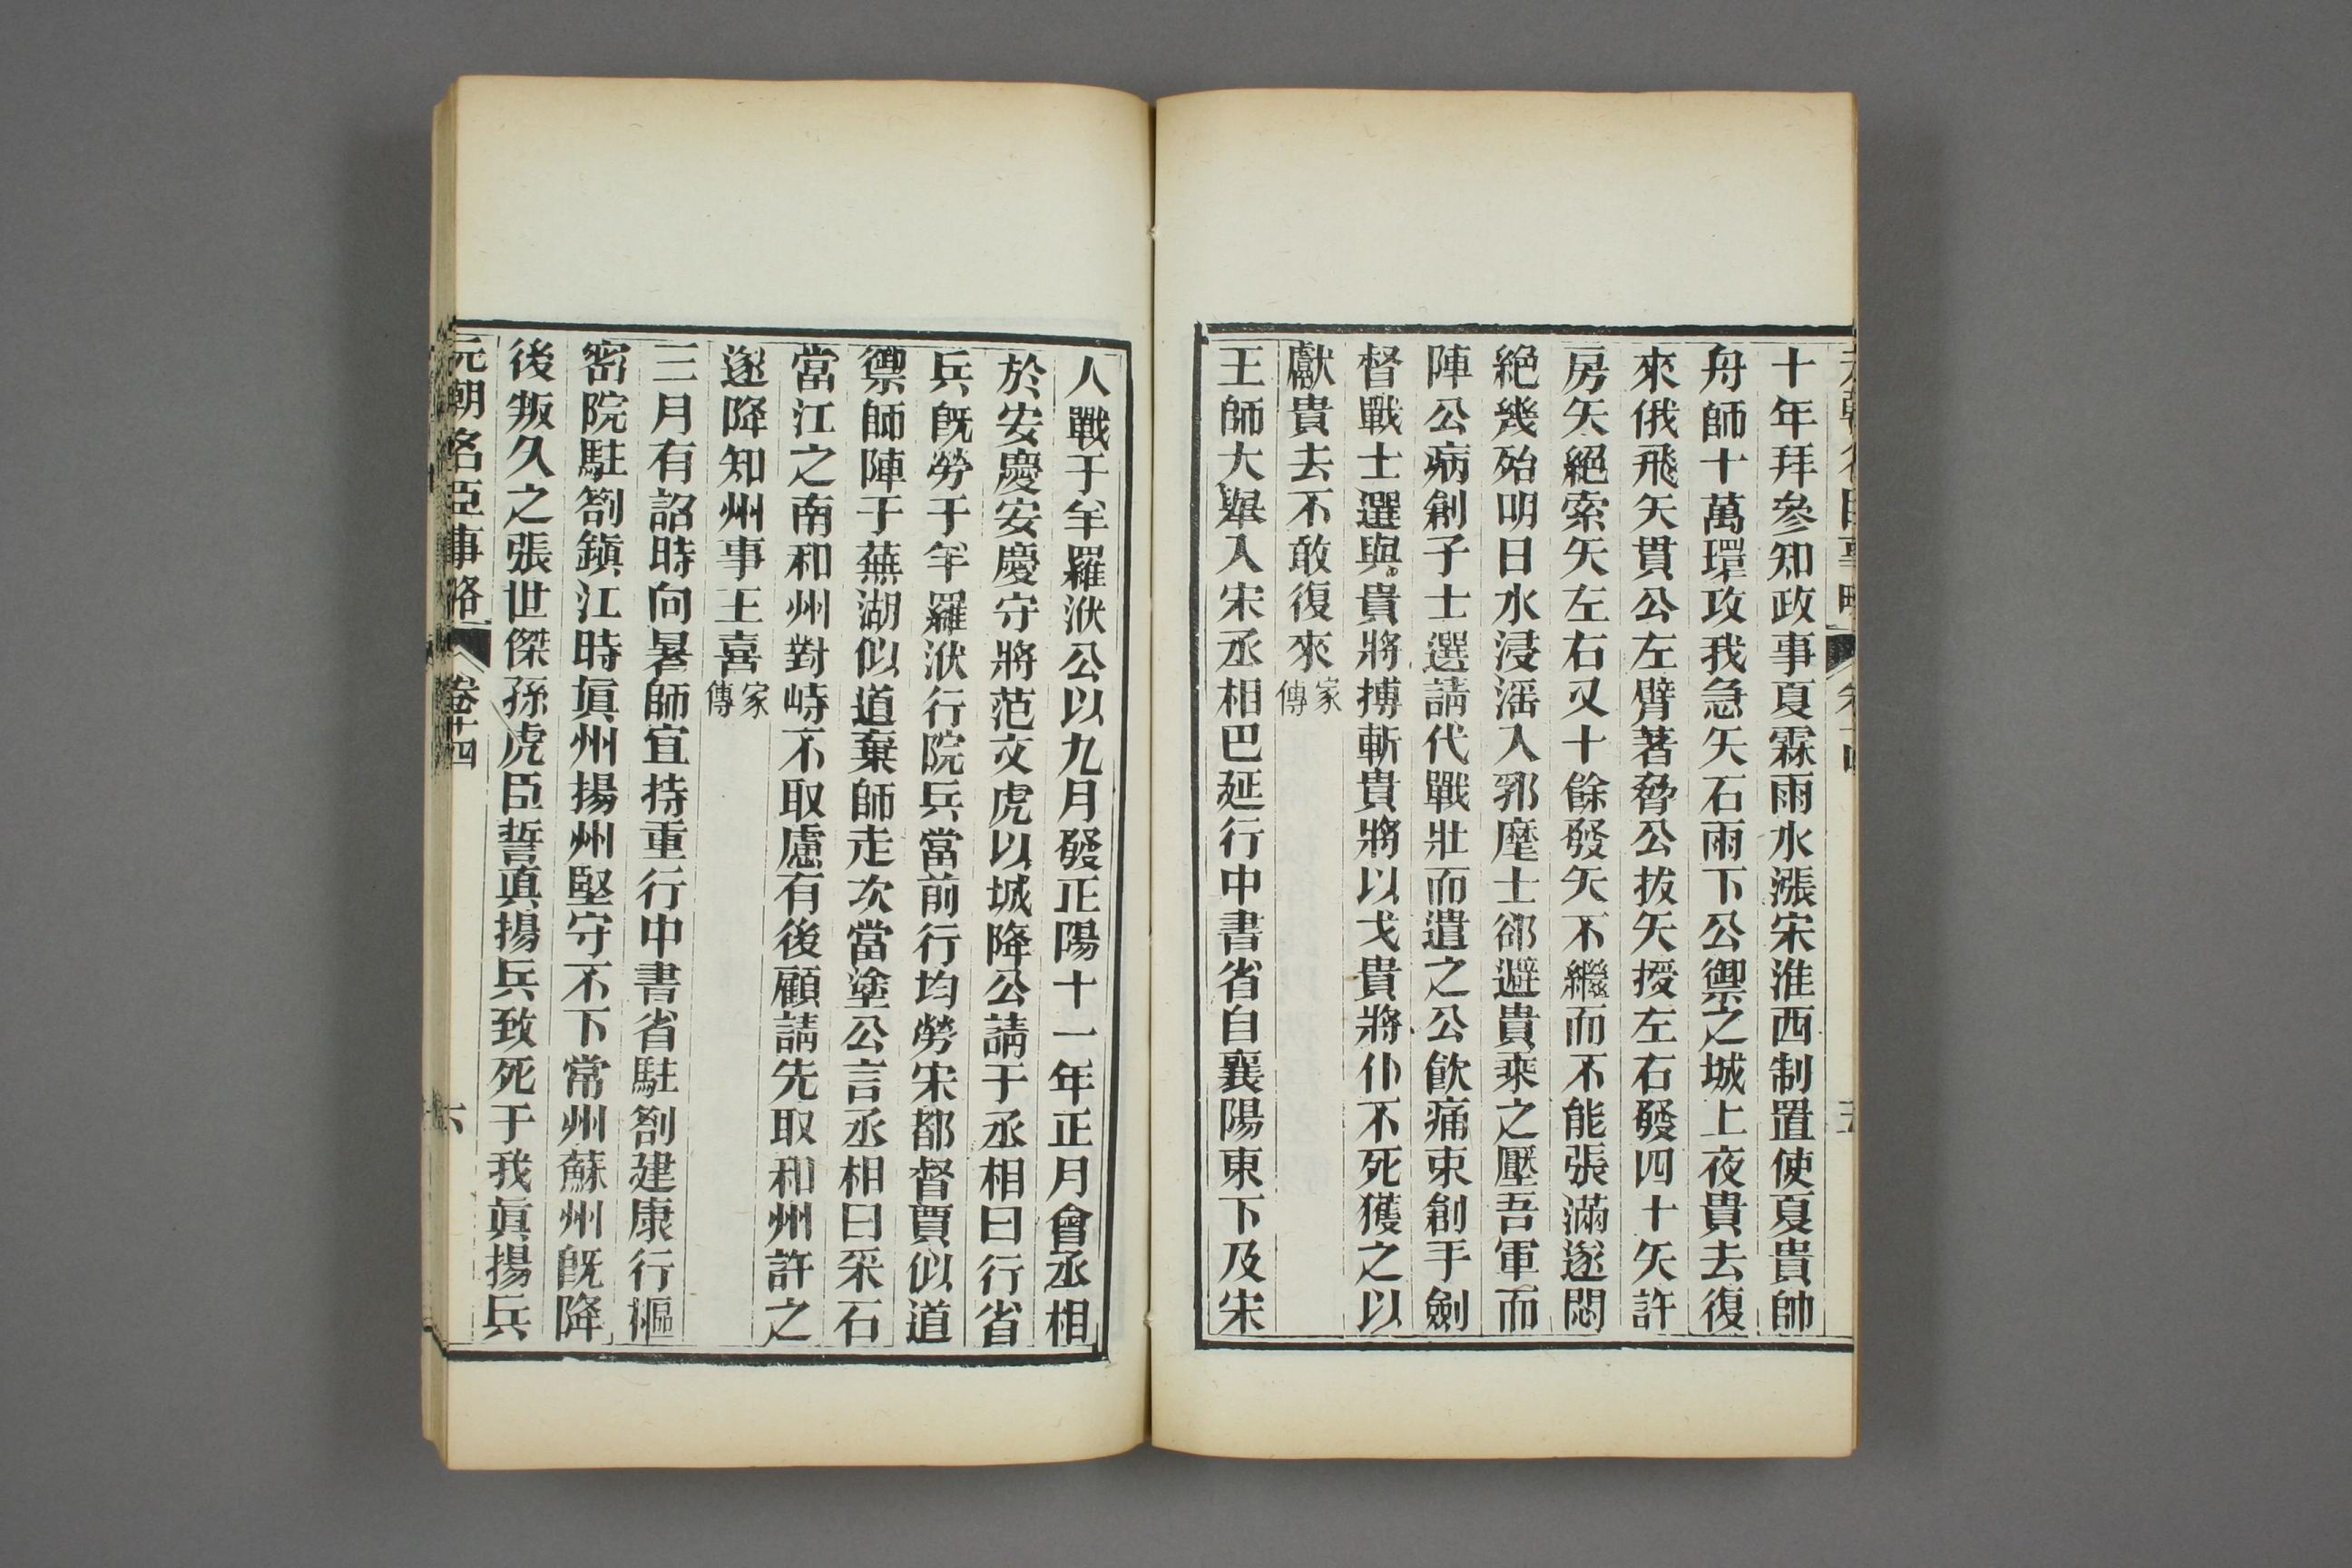 十年拜參知政事夏霖雨水漲宋淮西制置使夏貴帥
舟師十萬環攻我急矢石雨下公禦之城上夜貴去復
來俄飛矢貫公左臂著脅公拔矢授左右發四十矢許
房矢絕索矢左右又十餘發矢不繼而不能張滿遂悶
絕幾殆明日水浸淫入郛麾士郤避貴乘之壓吾軍而
陣公病創子士選請代戰壯而遣之公飲痛束創手劍
督戰士選與貴將搏斬貴將以戈貴將仆不死獲之以
獻貴去不敢復來家傳
王師大舉入宋丞相巴延行中書省自襄陽東下及宋
人戰于羊羅洑公以九月發正陽十一年正月會丞相
於安慶安慶守將范文虎以城降公請于丞相曰行省
兵旣勞于羊羅洑行院兵當前行均勞宋都督賈似道
禦師陣于蕪湖似道棄師走次當塗公言丞相曰采石
當江之南和州對峙不取慮有後顧請先取和州許之
遂降知州事王喜家傳
三月有詔時向暑師宜持重行中書省駐劄建康行樞
密院駐劄鎭江時眞州揚州堅守不下常州蘇州旣降
後叛久之張世傑孫虎臣誓眞揚兵致死于我眞揚兵
元朝名臣事略 卷十四 六